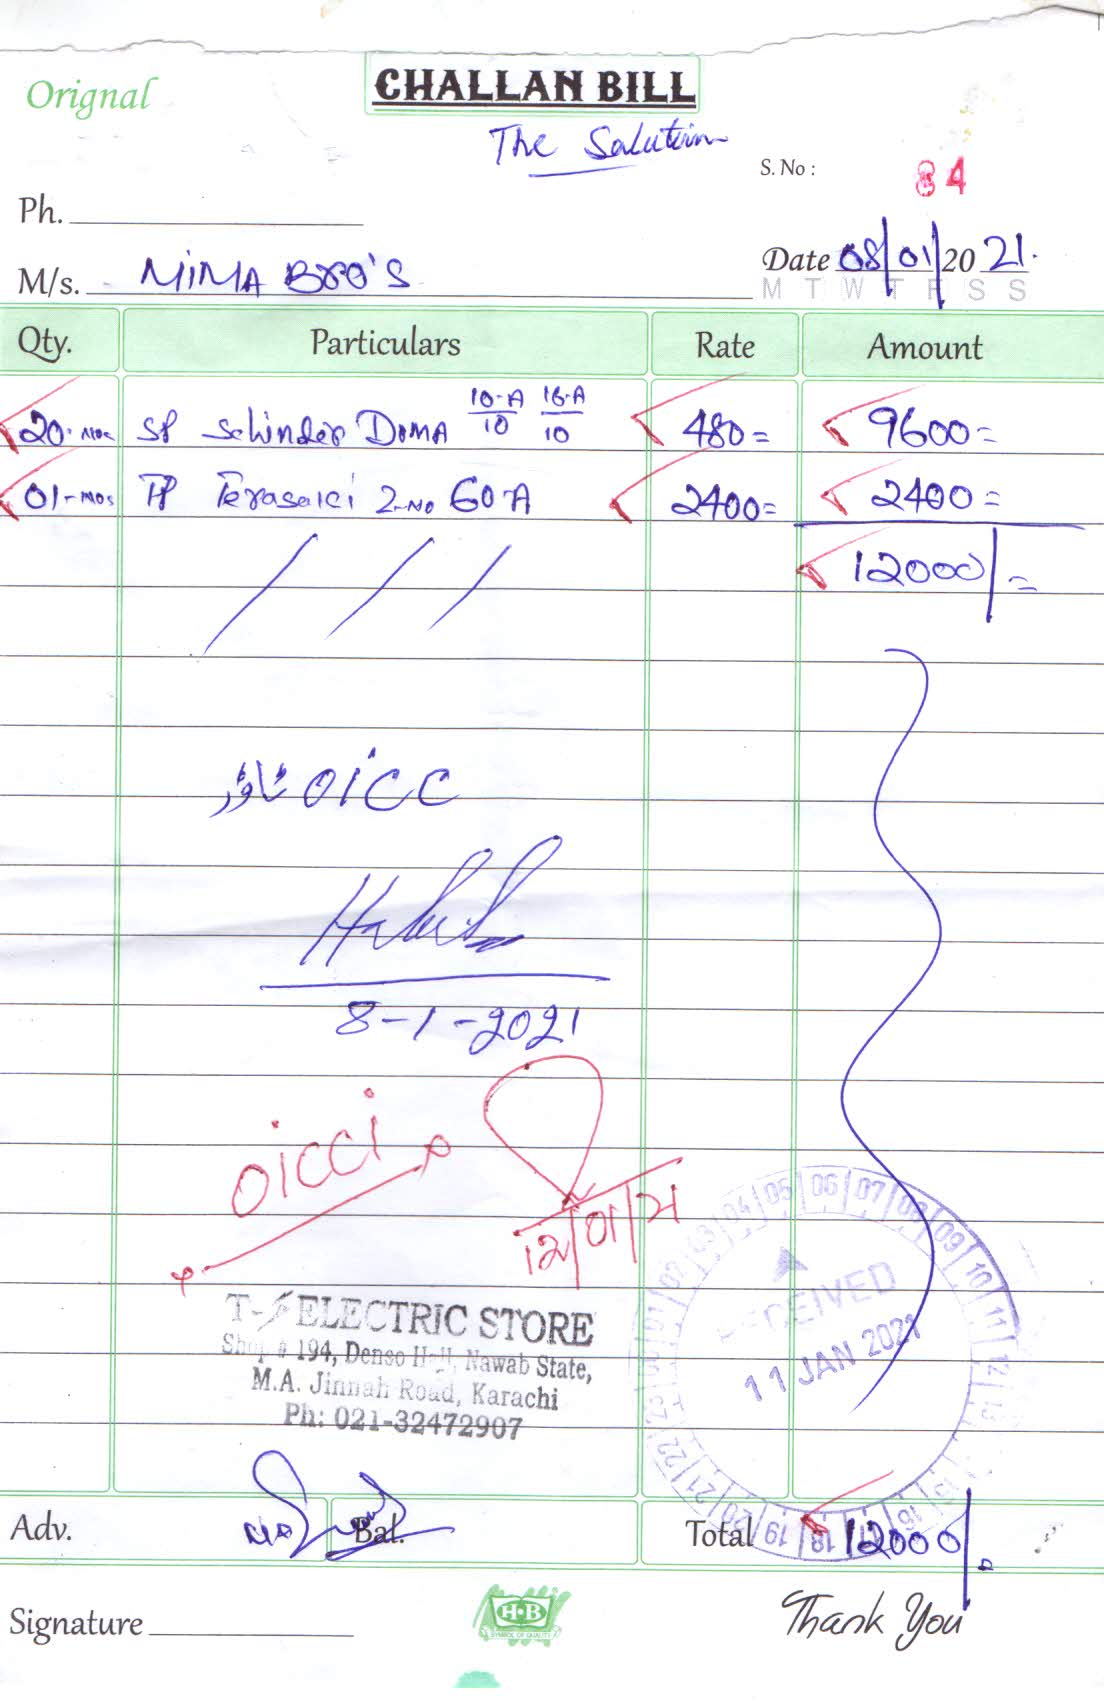 Orignal
CHALLAN BILL
The Solution
S. No : 84
Ph.
M/s. MIMA BRO'S
Date 08/01/2021.
M T W T F S S
Qty. Particulars Rate Amount
20-Nos SP Schinder DOMA 10-A/10 16-A/10 480= 9600=
01-Nos TP Terasaki 2-No 60A 2400= 2400=
12000/=
ٹاور OICC
Habib
8-1-2021
OICCI
12/01/21
ELECTRIC STORE
Shop # 194, Denso Hall, Nawab State,
M.A. Jinnah Road, Karachi
Ph: 021-32472907
RECEIVED
11 JAN 2021
01 02 03 04 05 06 07 08 09 10 11 12 13 16 17 18 19 20 21 22 23
Adv. Bal. Total 12000/=
Signature
H·B
SYMBOL OF QUALITY
Thank You